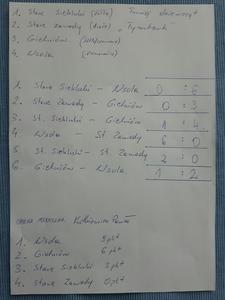 1. Stare Siekluki
2. Stare Zawady
3. Gielniów
4. Wsola
1. Stare Siekluki - Wsola 0 : 6
2. Stare Zawady - Gielniów 0 : 3
3. St. Siekluki - Gielniów 1 : 4
4. Wsola - St. Zawady 6 : 0
5. St. Siekluki - St. Zawady 2 : 0
6. Gielniów - Wsola 1 : 2
1. Wsola 9 pkt
2. Gielniów 6 pkt
3. Stare Siekluki 3 pkt
4. Stare Zawady 0 pkt